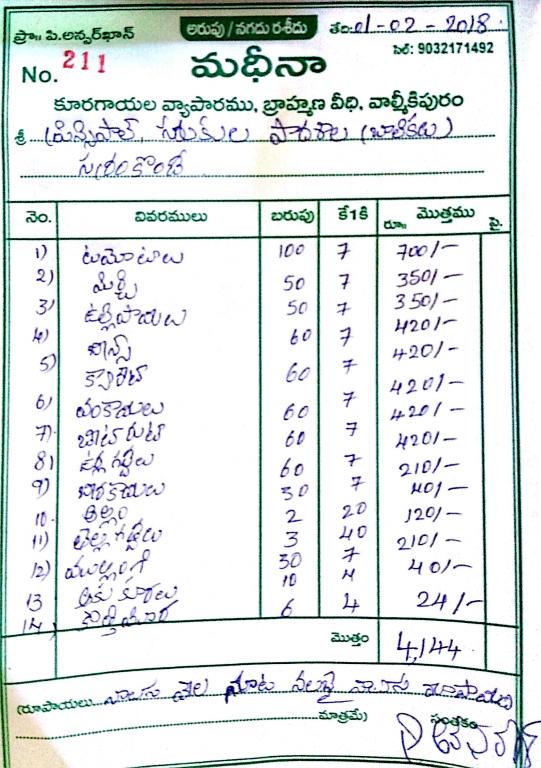 ప్రొ॥ పి.అన్వర్‌ఖాన్ అరువు / నగదు రశీదు తేది: 01-02-2018
సెల్: 9032171492
No. 211 మదీనా
కూరగాయల వ్యాపారము, బ్రాహ్మణ వీధి, వాల్మీకిపురం
శ్రీ ప్రిన్సిపాల్, గురుకుల పాఠశాల (బాలికలు)
నెం. వివరములు బరువు కే1కి మొత్తము
రూ॥ పై.
1) టమోటాలు 100 7 700/-
2) మిర్చి 50 7 350/-
3) ఉల్లిపాయలు 50 7 350/-
4) బీన్స్ 60 7 420/-
5) క్యారెట్ 60 7 420/-
6) వంకాయలు 60 7 420/-
7) బీట్ రూట్ 60 7 420/-
8) ఉర్లగడ్డలు 60 7 420/-
9) బీరకాయలు 30 7 210/-
10. అల్లం 2 20 40/-
11) తెల్లగడ్డలు 3 40 120/-
12) ముల్లంగి 30 7 210/-
13 ఆకు కూరలు 10 4 40/-
14. కొత్తిమీర 6 4 24/-
మొత్తం 4,144
(రూపాయలు నాలుగు వేల నూట నలభై నాలుగు రూపాయలు
మాత్రమే) సంతకం